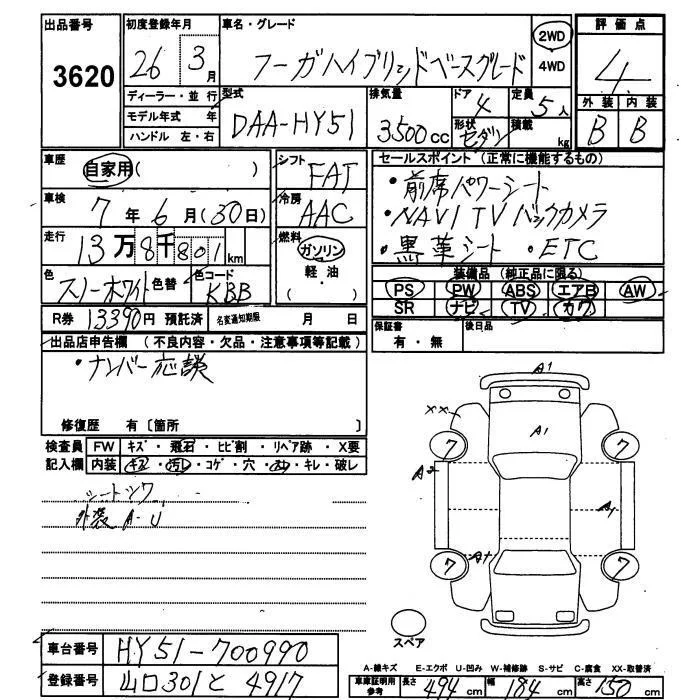 出品番号 初度登録年月 車名・グレード 2WD 評価点
3620 26 3月 フーガハイブリッドベースグレード 4WD 4
ディーラー・並行 型式 排気量 ドア 定員 外装 内装
モデル年式 年 DAA-HY51 3500cc 4 5人 B B
ハンドル 左・右 形状 セダン 積載 kg
車歴 自家用( ) シフト FAT セールスポイント(正常に機能するもの)
車検 7年6月(30日) 冷房 AAC ・前席パワーシート
走行 13万8千801km 燃料 ガソリン ・NAVI TV バックカメラ
軽・油 ・黒革シート ・ETC
色 スノーホワイト 色替 色コード KBB ( )
装備品(純正品に限る)
PS PW ABS エアB AW
SR ナビ TV カワ
R券 13390円 預託済 名変通知期限 月 日
保証書 有・無 後日品
出品店申告欄 (不良内容・欠品・注意事項等記載)
・ナンバー応談
修復歴 有〔箇所 〕
検査員 FW キズ・飛石・ヒビ割・リペア跡・X要
記入欄 内装 キズ・汚レ・コゲ・穴・スレ・キレ・破レ
シートシワ
外装 A-U
A1
XX
A1
7 7
A2 A1
7 7
スペア
車台番号 HY51-700990
登録番号 山口301と4917
A-線キズ E-エクボ U-凹み W-補修跡 S-サビ C-腐食 XX-取替済
車庫証明用参考 長さ 494cm 幅 184cm 高さ 150cm